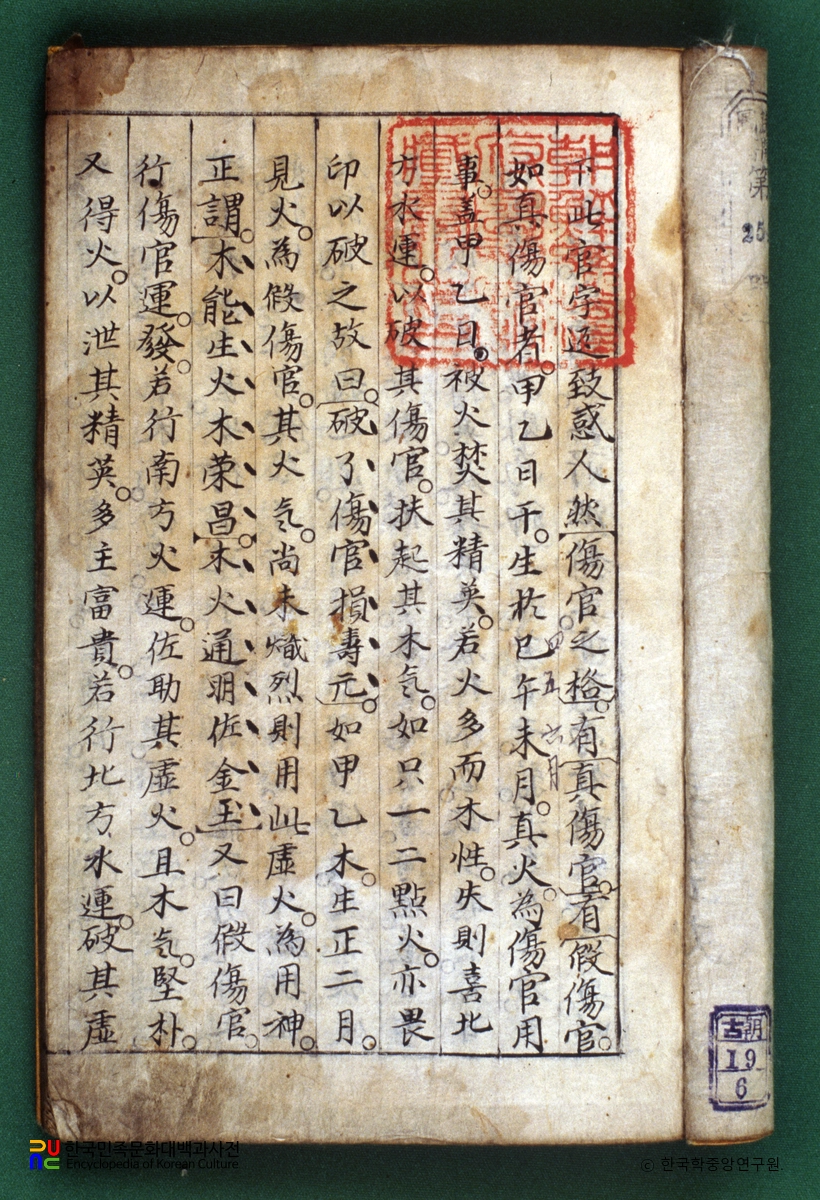 下此官字𨓏致惑人然傷官之格有真傷官有假傷官
如真傷官者甲乙日干生於巳午未月真火為傷官用
四五六月
事盖甲乙日被火焚其精英若火多而木性失則喜北
方水運以破其傷官扶起其木气如只一二點火亦畏
印以破之故曰破了傷官損壽元如甲乙木生正二月
見火為假傷官其火气尚未熾烈則用此虛火為用神
正謂木能生火木荣昌木火通明佐金玉又曰假傷官
行傷官運發若行南方火運佐助其虛火且木气堅朴
又得火以泄其精英多主富貴若行北方水運破其虛
第
25
古朝
19
6
한국민족문화대백과사전
Encyclopedia of Korean Culture
© 한국학중앙연구원